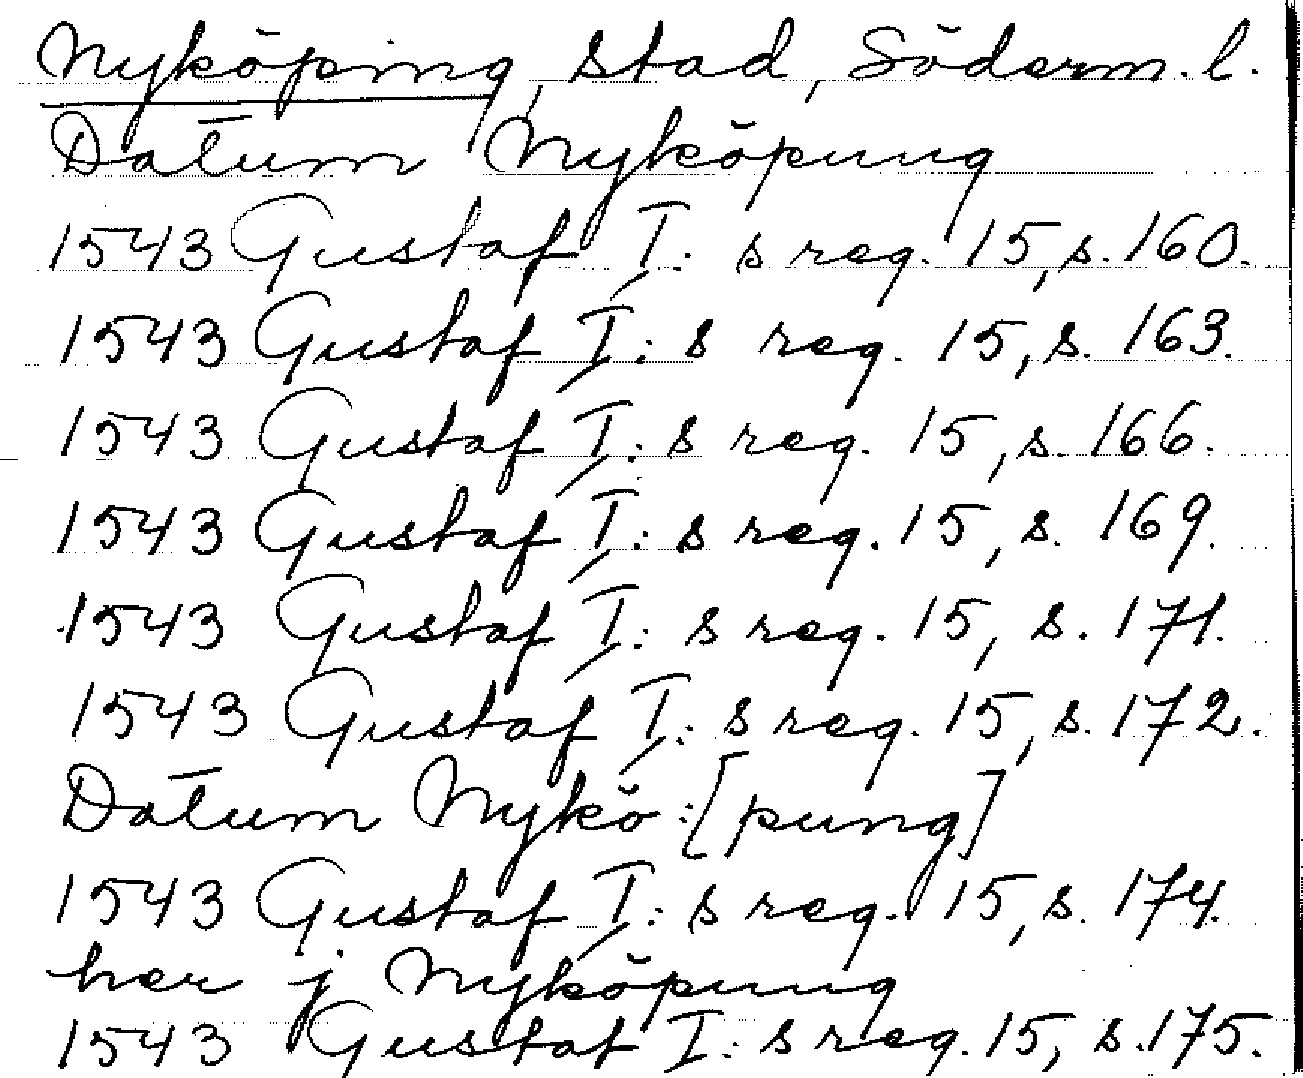 Nyköping, stad, Söderm. l.
Datum Nyköpung
1543 Gustaf I: s reg. 15, s. 160.
1543 Gustaf I: s reg. 15, s. 163.
1543 Gustaf I: s reg. 15, s. 166.
1543 Gustaf I: s reg. 15, s. 169.
1543 Gustaf I: s reg. 15, s. 171.
1543 Gustaf I: s reg. 15, s. 172.
Datum Nykö:[pung]
1543 Gustaf I: s reg. 15, s. 174.
her j Nyköpung
1543 Gustaf I: s reg. 15, s. 175.